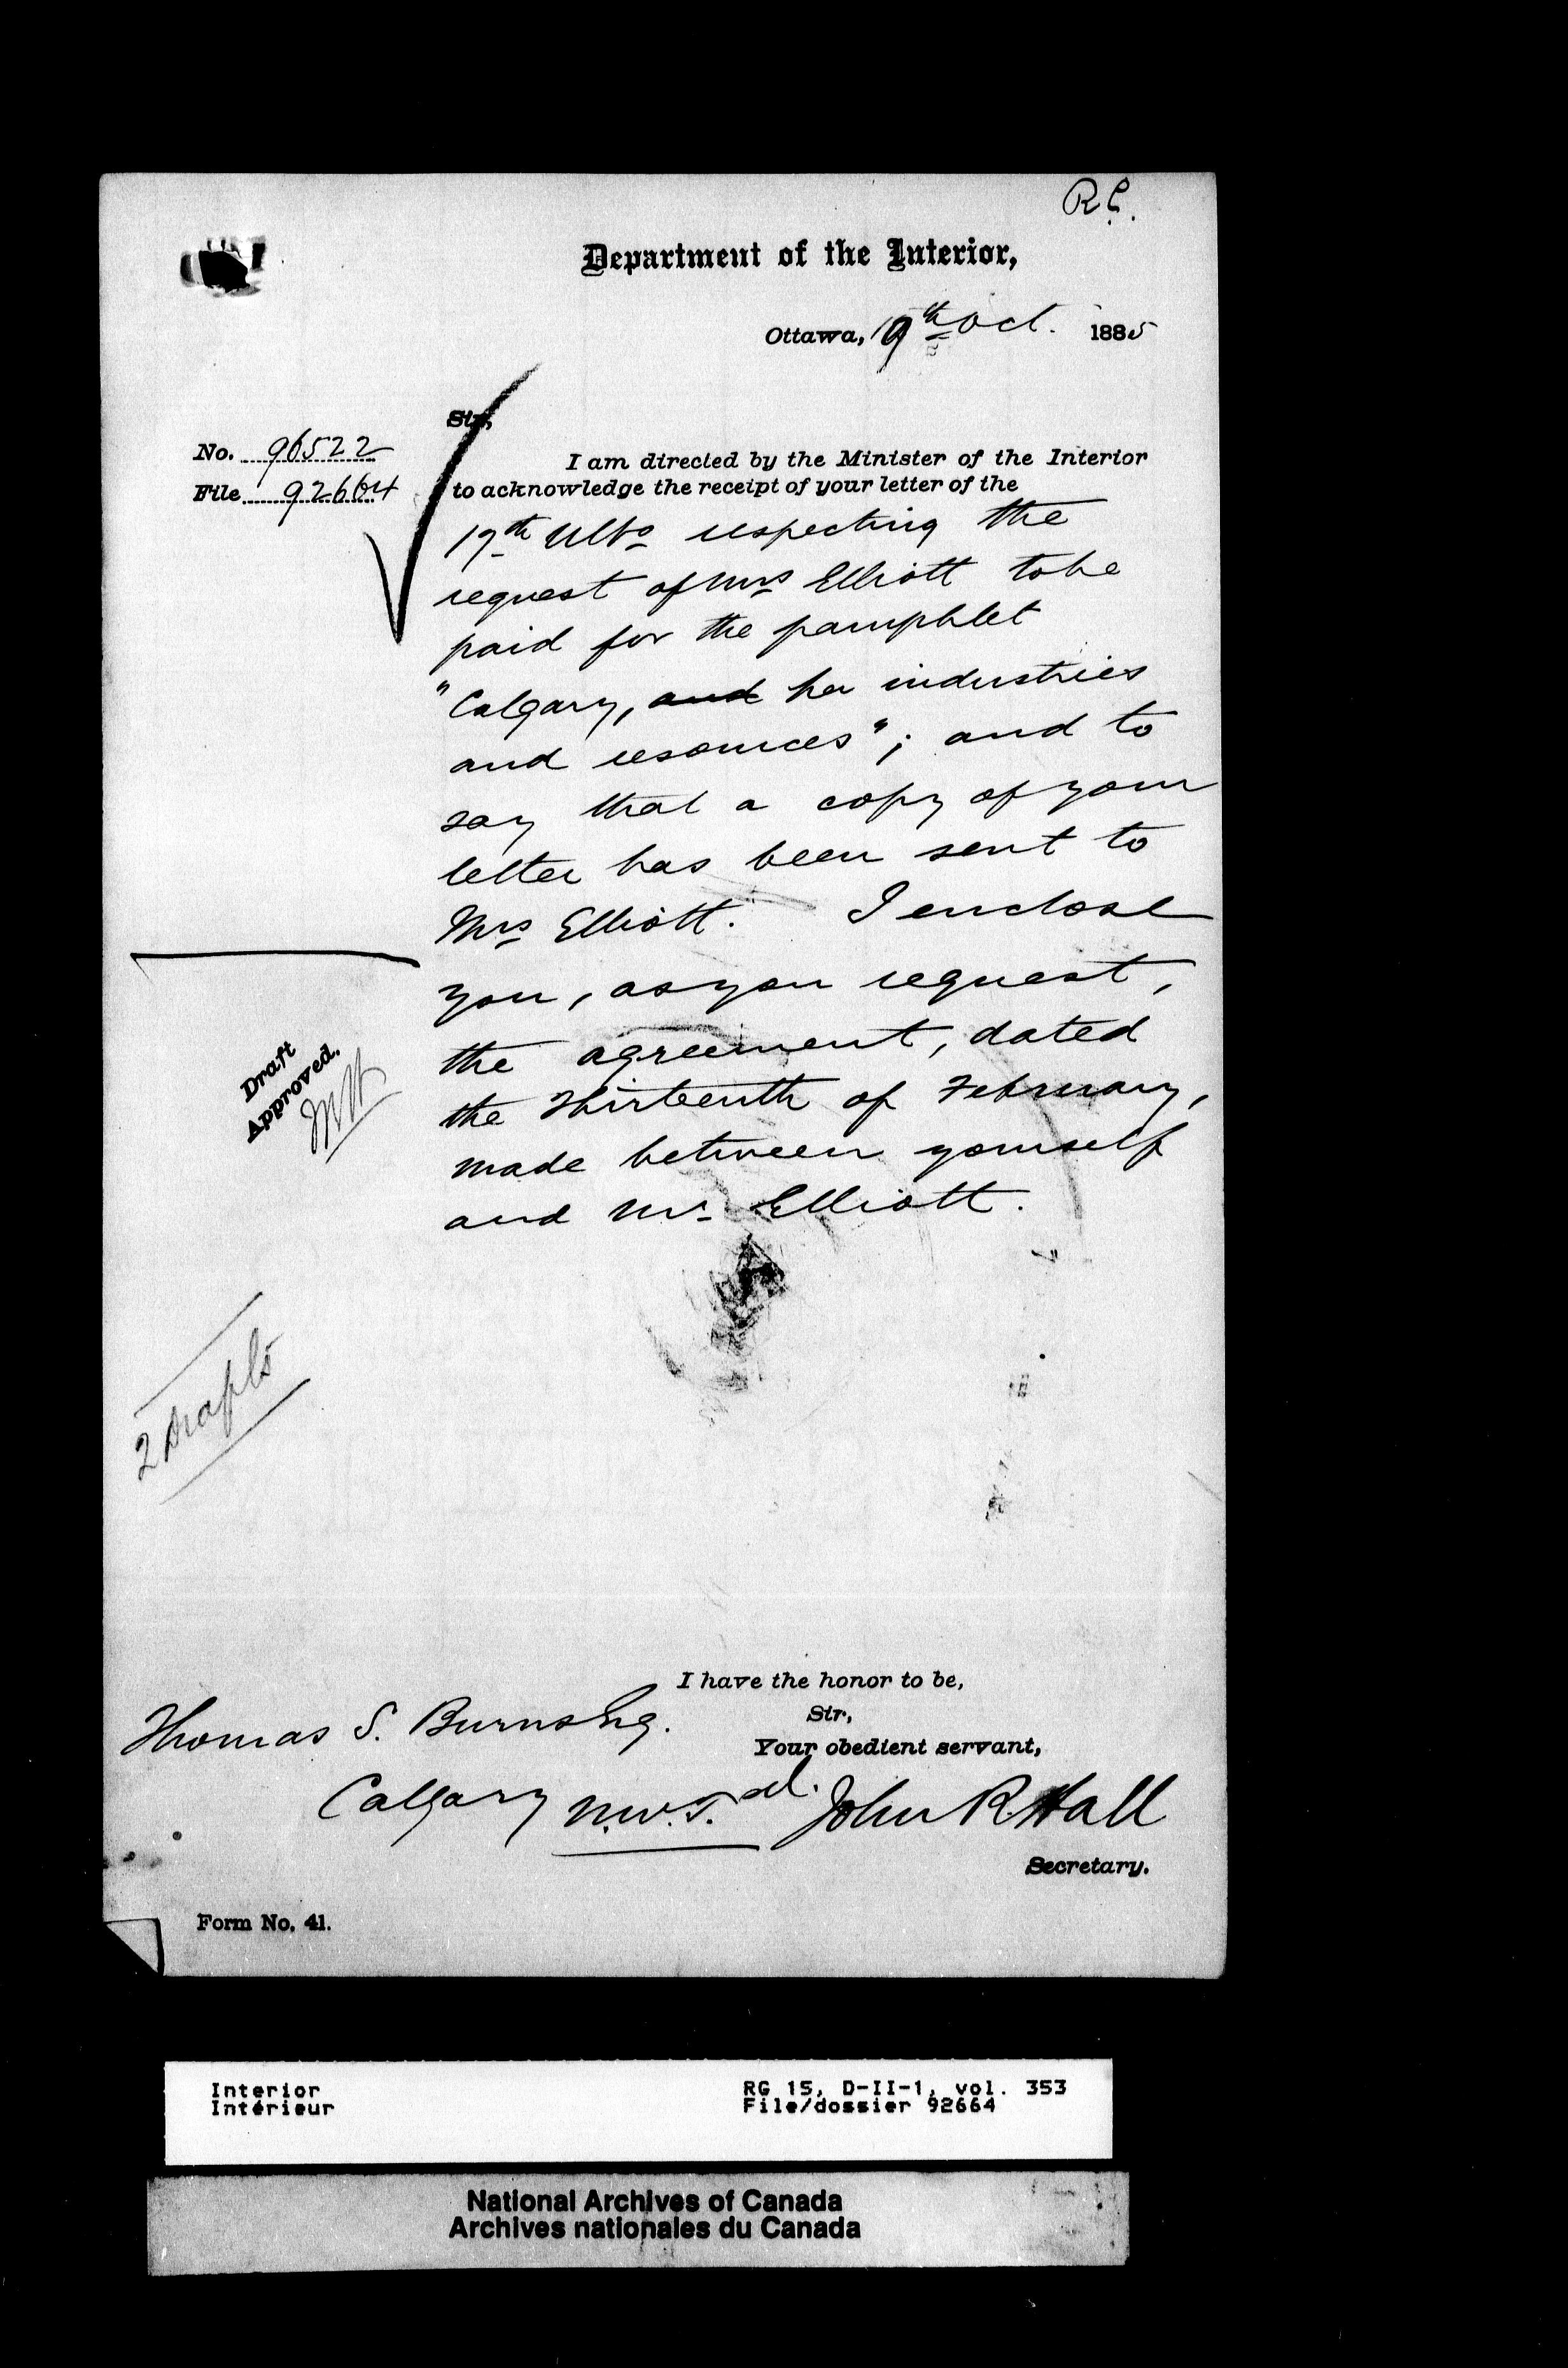 R.C.
Department of the Interior,
Ottawa, 19th Oct. 1885
Sir,
No. 96522
File 92664
I am directed by the Minister of the Interior
to acknowledge the receipt of your letter of the
17th Ulto respecting the
request of Mrs Elliott to be
paid for the pamphlet
"Calgary, and her industries
and resources"; and to
say that a copy of your
letter has been sent to
Mrs Elliott. I enclose
you, as you request,
the agreement, dated
the Thirteenth of February,
made between yourself
and Mr. Elliott.
Draft
Approved.
2 Drafts
I have the honor to be,
Sir,
Your obedient servant,
Thomas S. Burns Esq.
Calgary N.W.T.
John R. Hall
Secretary.
Form No. 41.
Interior
Intérieur
RG 15, D-II-1, vol. 353
File/dossier 92664
National Archives of Canada
Archives nationales du Canada